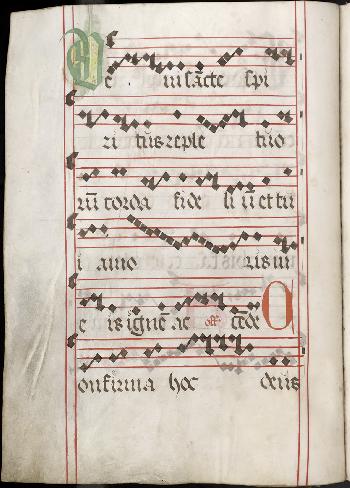 Ve ni sancte spi
ri tus reple tuo
rū corda fide li ū et tu
i amo ris in
e is ignē ac off cēde C
onfirma hoc deus